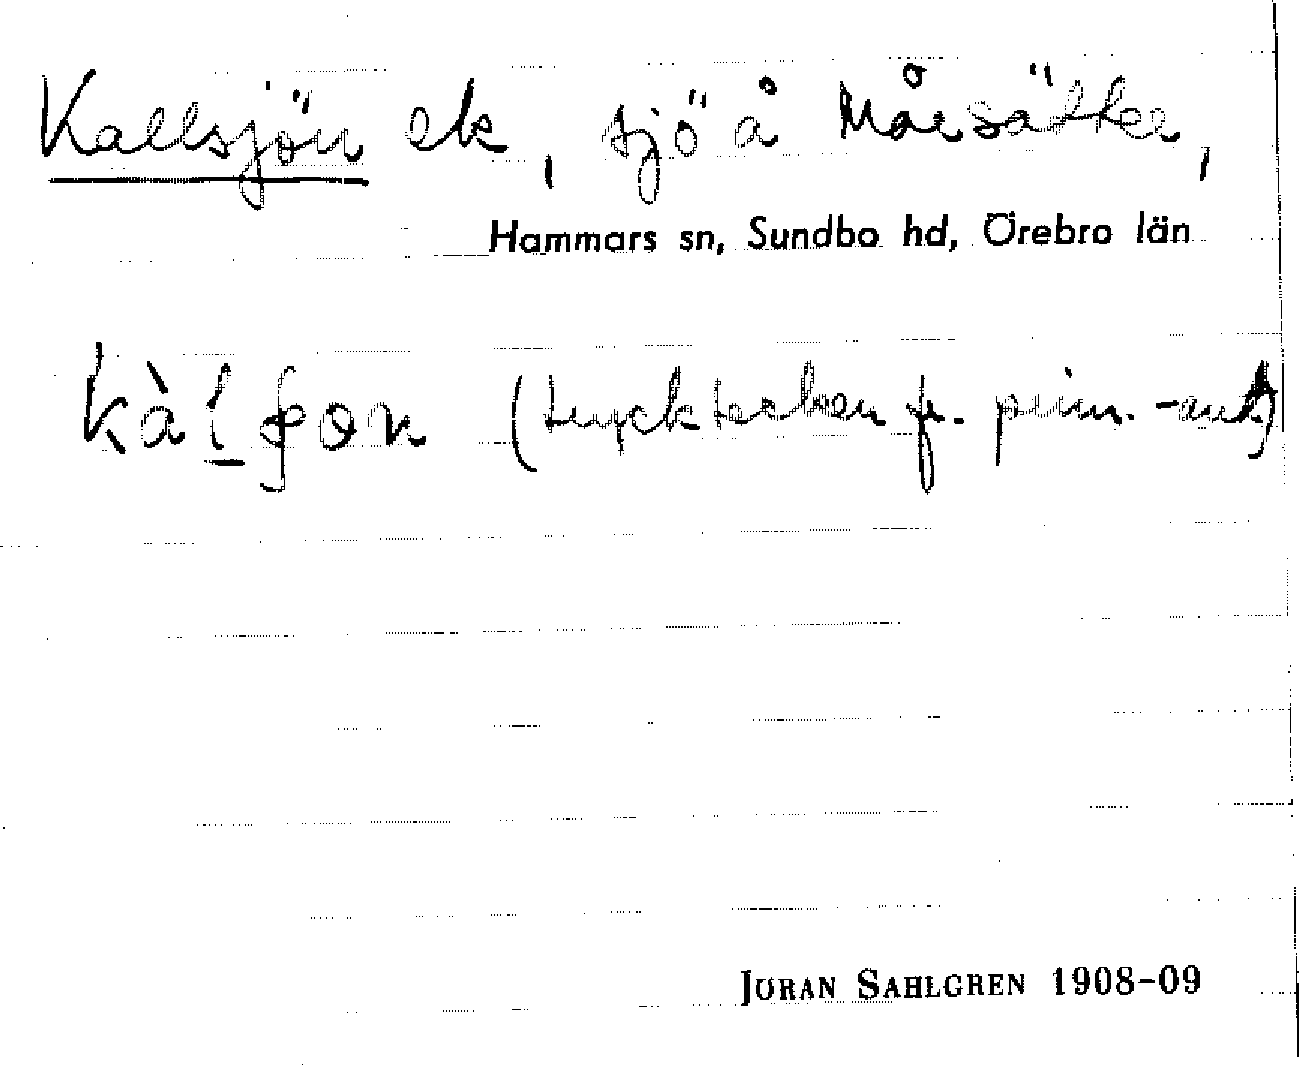 Kallsjön ek, sjö å Mårsätter,
Hammars sn, Sundbo hd, Örebro län
kàl̲ʃon (trycktecken fr. prim.-ant)
JÖRAN SAHLGREN 1908-09